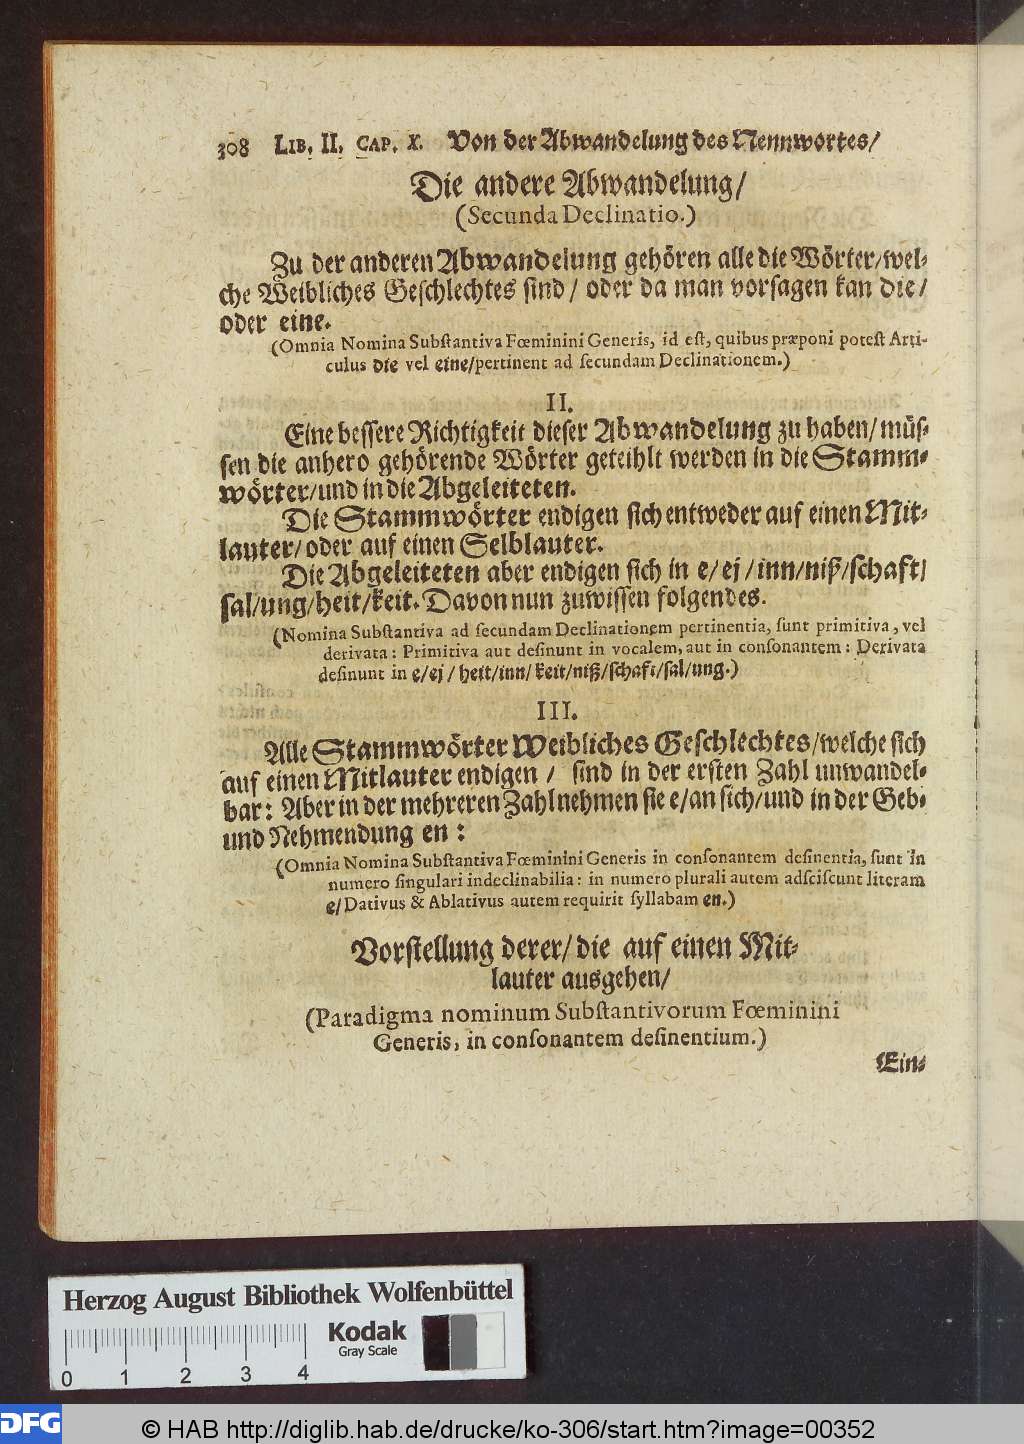 308 LIB, II, CAP, X. Von der Abwandelung des Nennwortes/
Die andere Abwandelung/
(Secunda Declinatio.)
Zu der anderen Abwandelung gehören alle die Wörter/wel-
che Weibliches Geschlechtes sind/ oder da man vorsagen kan die/
oder eine.
(Omnia Nomina Substantiva Fœminini Generis, id est, quibus præponi potest Arti-
culus die vel eine/pertinent ad secundam Declinationem.)
II.
Eine bessere Richtigkeit dieser Abwandelung zu haben/müs-
sen die anhero gehörende Wörter geteihlt werden in die Stamm-
wörter/und in die Abgeleiteten.
Die Stammwörter endigen sich entweder auf einen Mit-
lauter/oder auf einen Selblauter.
Die Abgeleiteten aber endigen sich in e/ej/inn/niß/schaft/
sal/ung/heit/keit. Davon nun zuwissen folgendes.
(Nomina Substantiva ad secundam Declinationem pertinentia, sunt primitiva, vel
derivata: Primitiva aut desinunt in vocalem, aut in consonantem: Derivata
desinunt in e/ej/heit/inn/keit/niß/schaft/sal/ung.)
III.
Alle Stammwörter Weibliches Geschlechtes/welche sich
auf einen Mitlauter endigen/ sind in der ersten Zahl unwandel-
bar: Aber in der mehreren Zahl nehmen sie e/an sich/und in der Geb-
und Nehmendung en:
(Omnia Nomina Substantiva Fœminini Generis in consonantem desinentia, sunt in
numero singulari indeclinabilia: in numero plurali autem adsciscunt literam
e/Dativus & Ablativus autem requirit syllabam en.)
Vorstellung derer/die auf einen Mit-
lauter ausgehen/
(Paradigma nominum Substantivorum Fœminini
Generis, in consonantem desinentium.)
Ein-
Herzog August Bibliothek Wolfenbüttel
Kodak
Gray Scale
0 1 2 3 4
DFG
© HAB http://diglib.hab.de/drucke/ko-306/start.htm?image=00352